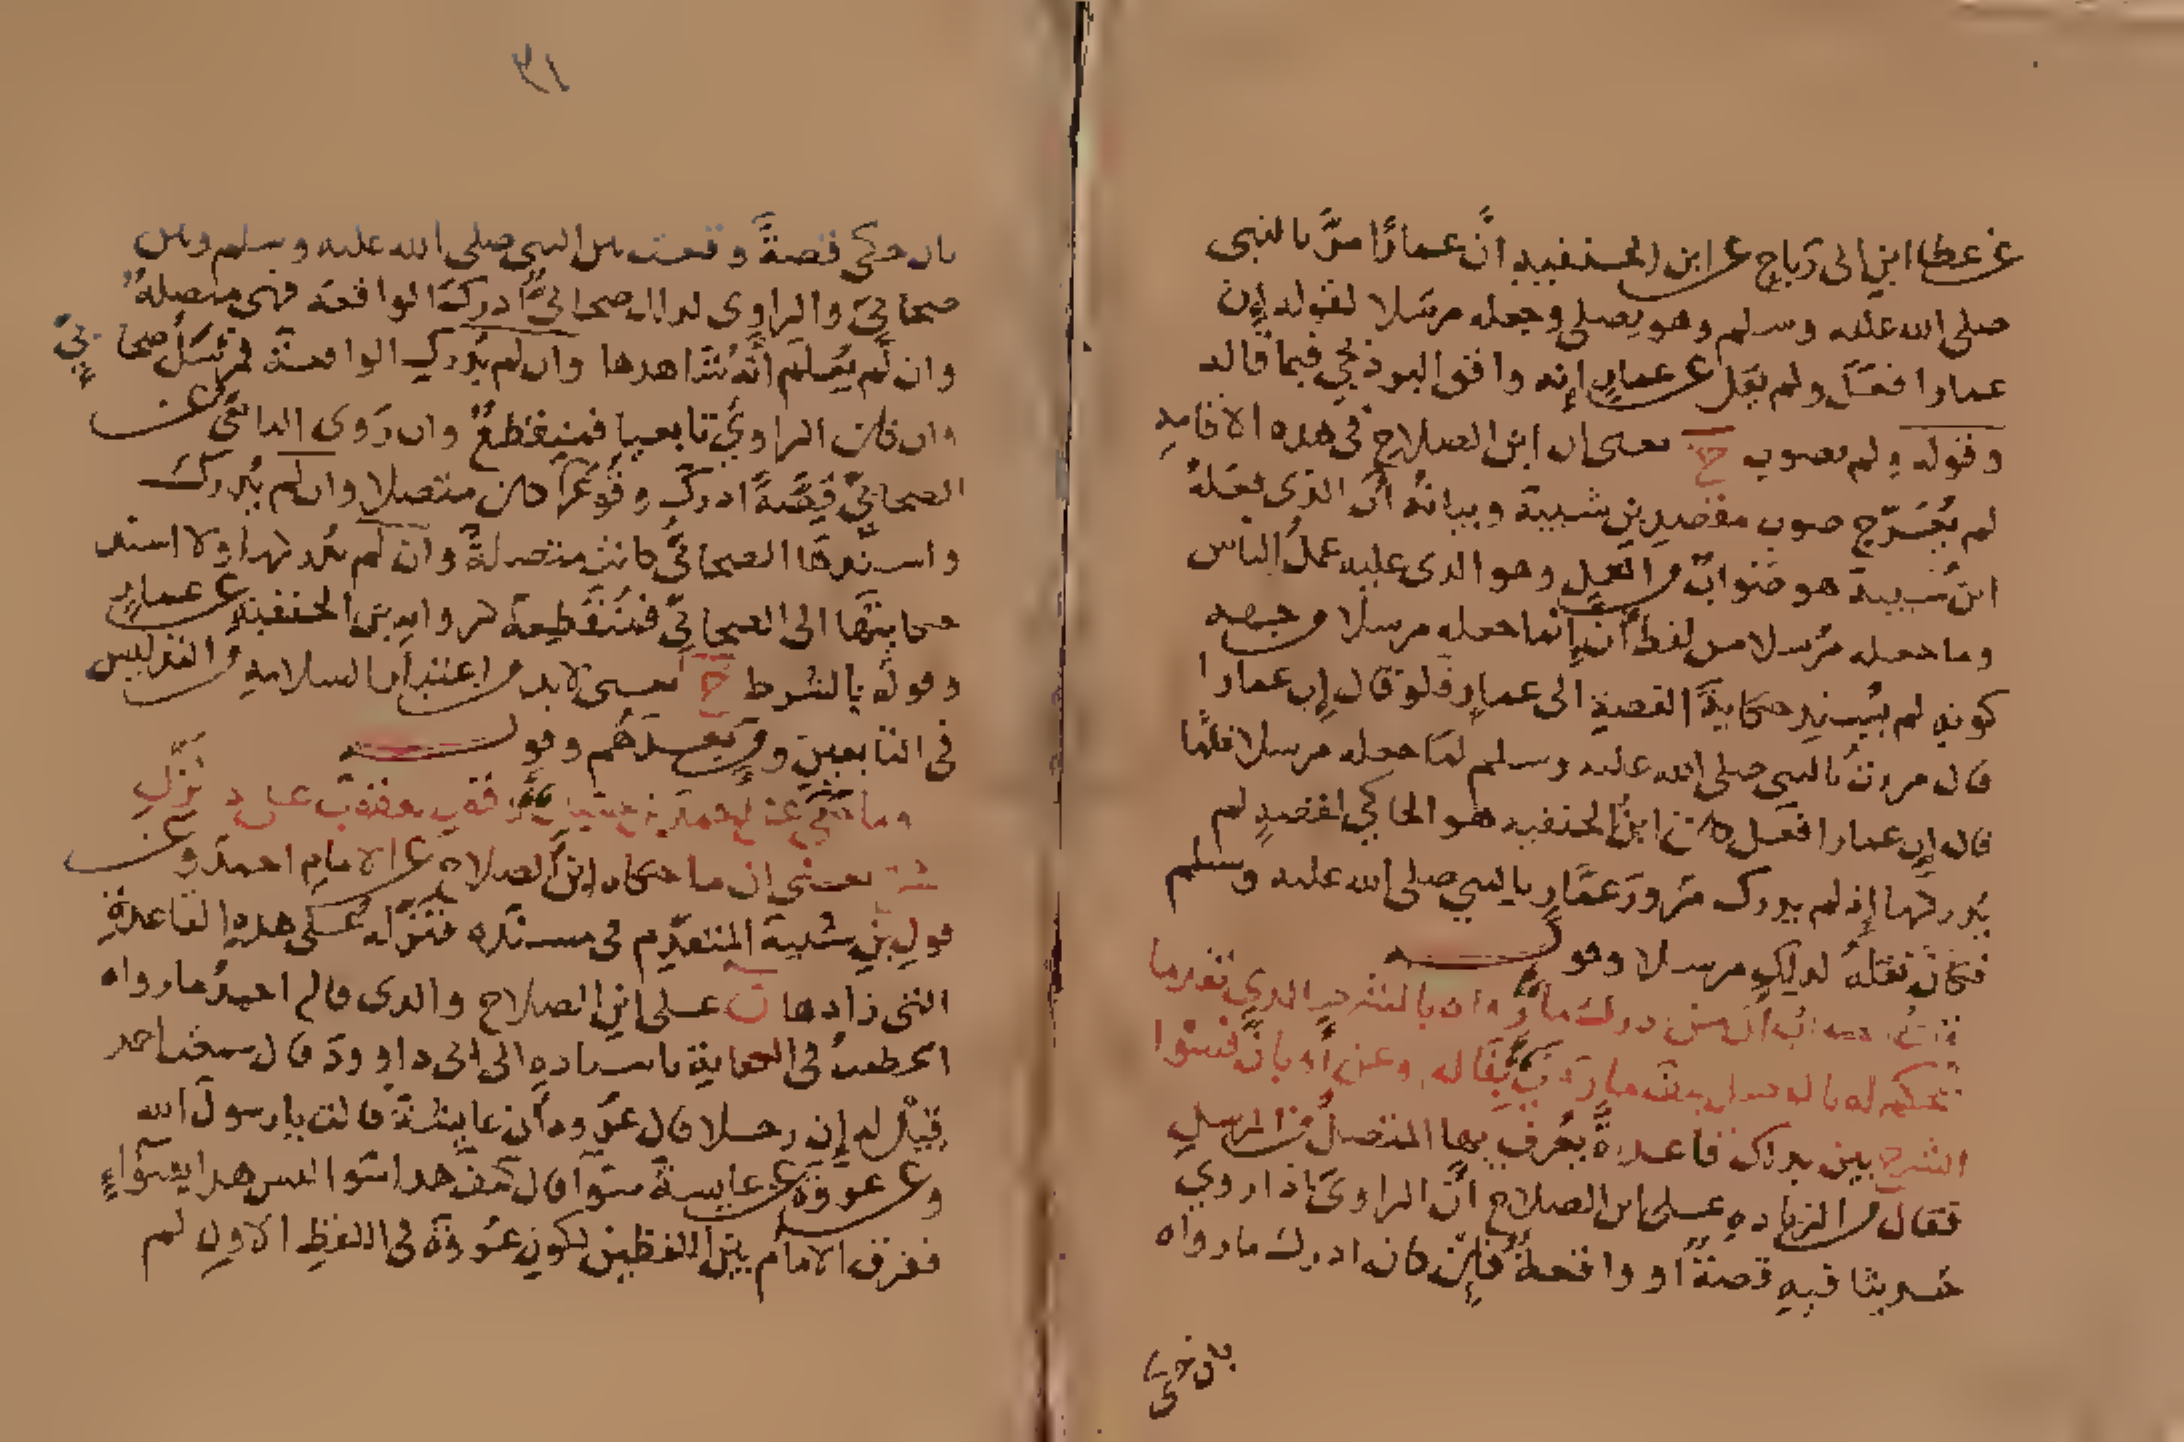 عن عطا ابن ابى رباح عن ابن الحنفيه انّ عمارًا مرّ بالنبى
صلى الله عليه وسلم وهو يصلي وجعله مرسلا لقوله إن
عمارا فعل ولم يقل عن عمارٍ إنه وافق البرديجي فيما قاله
وقوله ولم يصوب خ يعنى ان ابن الصلاح في هذه الاقامه
لم يُعرّج صوب مقصدِ بن شيبة وبيانه أن الذى فعله
ابن شيبة هو صَواب من العمل وهو الذى عليه عمل الناس
وما جعله مرسلا من لفظ أنّ إنما جعله مرسلا من جهه
كونه لم يُسند حكاية القصة الى عمارٍ فلو قال إن عمارا
قال مررت بالنبى صلى الله عليه وسلم لما جعله مرسلا فلما
قال إن عمارا فعل كان ابن الحنفيه هو الحاكي لقصةٍ لم
يُدركها إذ لم يدرك مرورَ عمّارٍ بالنبي صلى الله عليه وسلم
فكان نقله لذلك مرسلا وقو
الصواب ان من ادرك ما رواه بالشرط الذي تقدما
يحكم له بالوصل كيف ما روى بقال وعن أو بانّ فسوا
الشرح بين بذلك قاعدةً يُعرف بها المتصلُ من المرسلِ
فقال من الزياده على ابن الصلاح انّ الراوىَ اذا روي
حديثا فيه قصةً او واقعةً فإن كان ادرك مارواه
بان حكى

٣١
بان حكى قصةً وقعت بين النبى صلى الله عليه وسلم وبين
صحابيّ والراوى لذلك صحابيٌّ أدرك الواقعة فهى متصلةٌ
وان لم يُعلم أنه شاهدها وان لم يُدرك الواقعة فمرسل صحابيٍّ
وان كان الراوىُ تابعيا فمنقطعٌ وان رَوى التابعىّ عن
الصحابيِّ قِصَّةً ادرك وقُوعَها كان متصلا وان لم يُدرك
واسنَدها الصحابىِّ كانت متصلةً وان لم يدركها ولا اسند
حكايتَها الى الصحابيِّ فمنقطعة كروايه بن الحنفية عن عمارٍ
وقوله بالشرط خ يعنى لابد من اعتبار السلامه من التدليس
في التابعينَ ومن بَعدَهُم وقو
وما حكى عن احمد بن حنبل وقول يعقوب على ذا نزّل
ش يعنى ان ما حكاه ابن الصلاح عن الامام احمد وعن
قول بن شيبة المتقدّم في مسنده فنَزّله على هذه القاعدةِ
التى زادها ن على ابن الصلاح والذى قاله احمدُ مارواه
الخطيبُ في الكفاية باسناده الى ابى داوود قال سمعت احمد
قِيل له إن رجلا قال عروة أن عايشة قالت يا رسول الله
وعن عروةَ عن عايشة سَوا قال كيف هذا سَوا ليس هذا بسَوَاءٍ
ففرق الامام بين اللفظين لكونِ عُروةَ في اللفظِ الاول لم